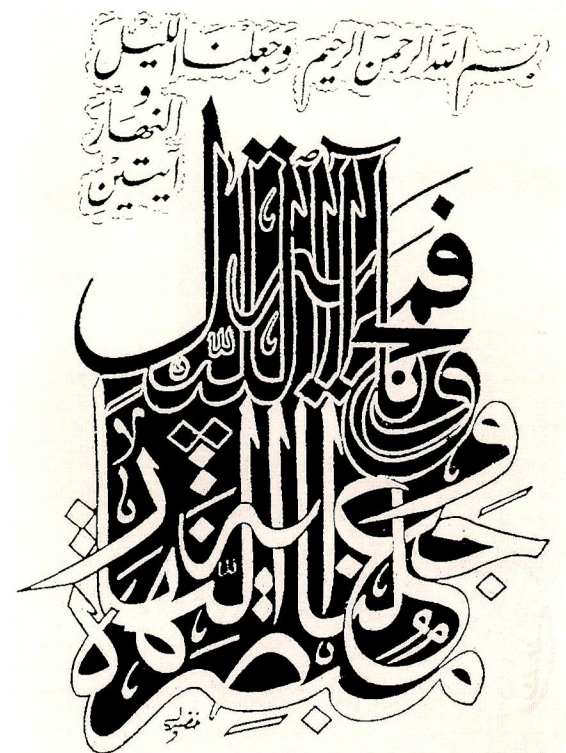 بسم الله الرحمن الرحیم وجعلنا اللیل
و
النهار
آیتین
فمحونا آیة اللیل
وجعلنا آیة النهار
مبصرة